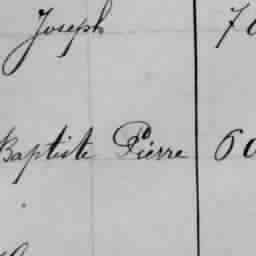 Joseph 70
Baptiste Pierre 60